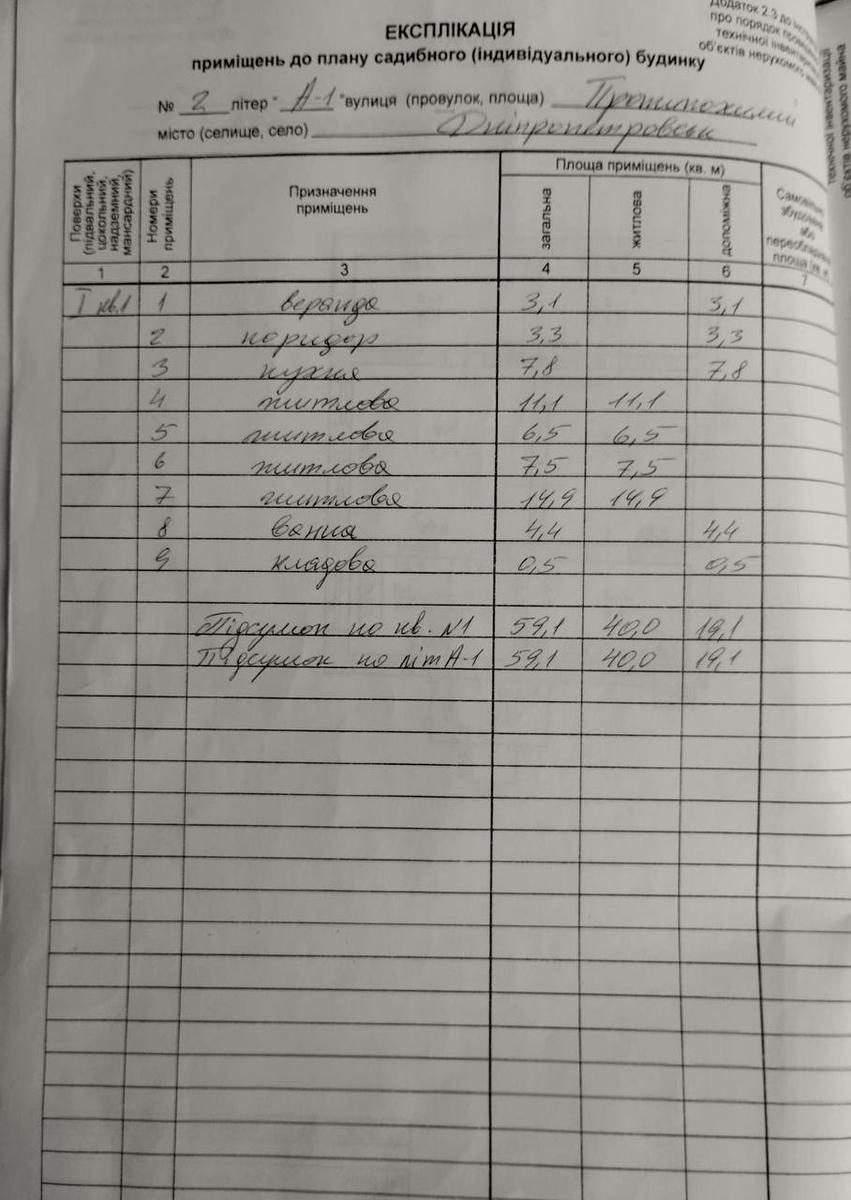 Додаток 2.3 до
про порядок
технічної
об'єктів нерухомого
технічної інвентаризації
об'єктів нерухомого майна
ЕКСПЛІКАЦІЯ
приміщень до плану садибного (індивідуального) будинку
№ 2 літер " А-1 " вулиця (провулок, площа)
місто (селище, село) Дніпропетровськ
Поверхи (підвальний, цокольний, надземний, мансардний) Номери приміщень Призначення приміщень Площа приміщень (кв. м)
загальна житлова допоміжна площа
1 2 3 4 5 6 7
І кв.1 1 веранда 3,1 3,1
2 коридор 3,3 3,3
3 кухня 7,8 7,8
4 житлова 11,1 11,1
5 житлова 6,5 6,5
6 житлова 7,5 7,5
7 житлова 14,9 14,9
8 ванна 4,4 4,4
9 кладова 0,5 0,5
Підсумок по кв. №1 59,1 40,0 19,1
Підсумок по літ А-1 59,1 40,0 19,1